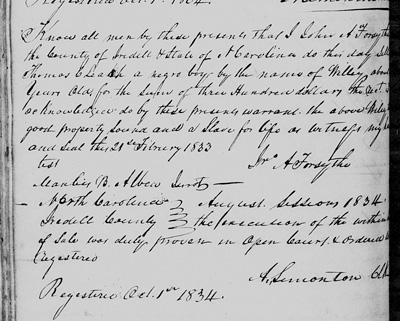 Registered Oct. 1st 1834.
Know all men by these presents that I John A Forsythe
the County of Iredell & State of N Carolina do this day Sell
Thomas a negro boy by the name of Wilky about
Years Old, for the Sum of three Hundred dollars the
acknowledge do by these presents warrant the above Wilky
good property Sound and a Slave for life as witness my
and Seal this 21st Febuary 1833
test Jno A Forsythe
B. Jurot
North Carolina August Sessions 1834
Iredell County the execution of the within
of Sale was duly proven in Open Court & Ordered
Registered
A. Simonton Clk
Registered Oct. 1st 1834.